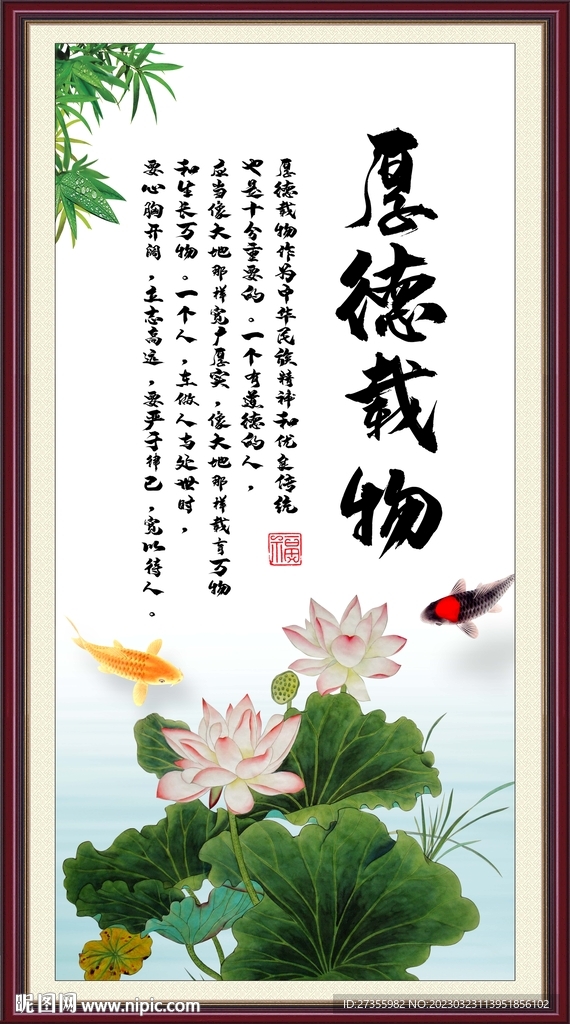 厚德载物
厚德载物作为中华民族精神和优良传统
也是十分重要的。一个有道德的人，
应当像大地那样宽广厚实，像大地那样载育万物
和生长万物。一个人，在做人与处世时，
要心胸开阔，立志高远，要严于律己，宽以待人。
福
昵图网 www.nipic.com
ID:27355982 NO:20230323113951856102